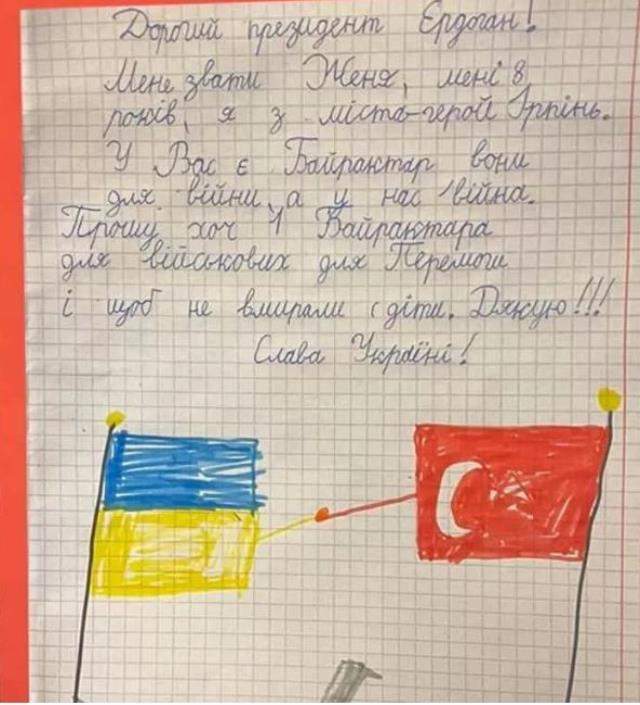 Дорогий президент Ердоган!
Мене звати Женя, мені 8
років, я з міста-герой Ірпінь.
У Вас є Байрактар вони
для війни, а у нас війна.
Прошу хоч 1 Байрактара
для військових для Перемоги
і щоб не вмирали діти. Дякую!!!
Слава Україні!